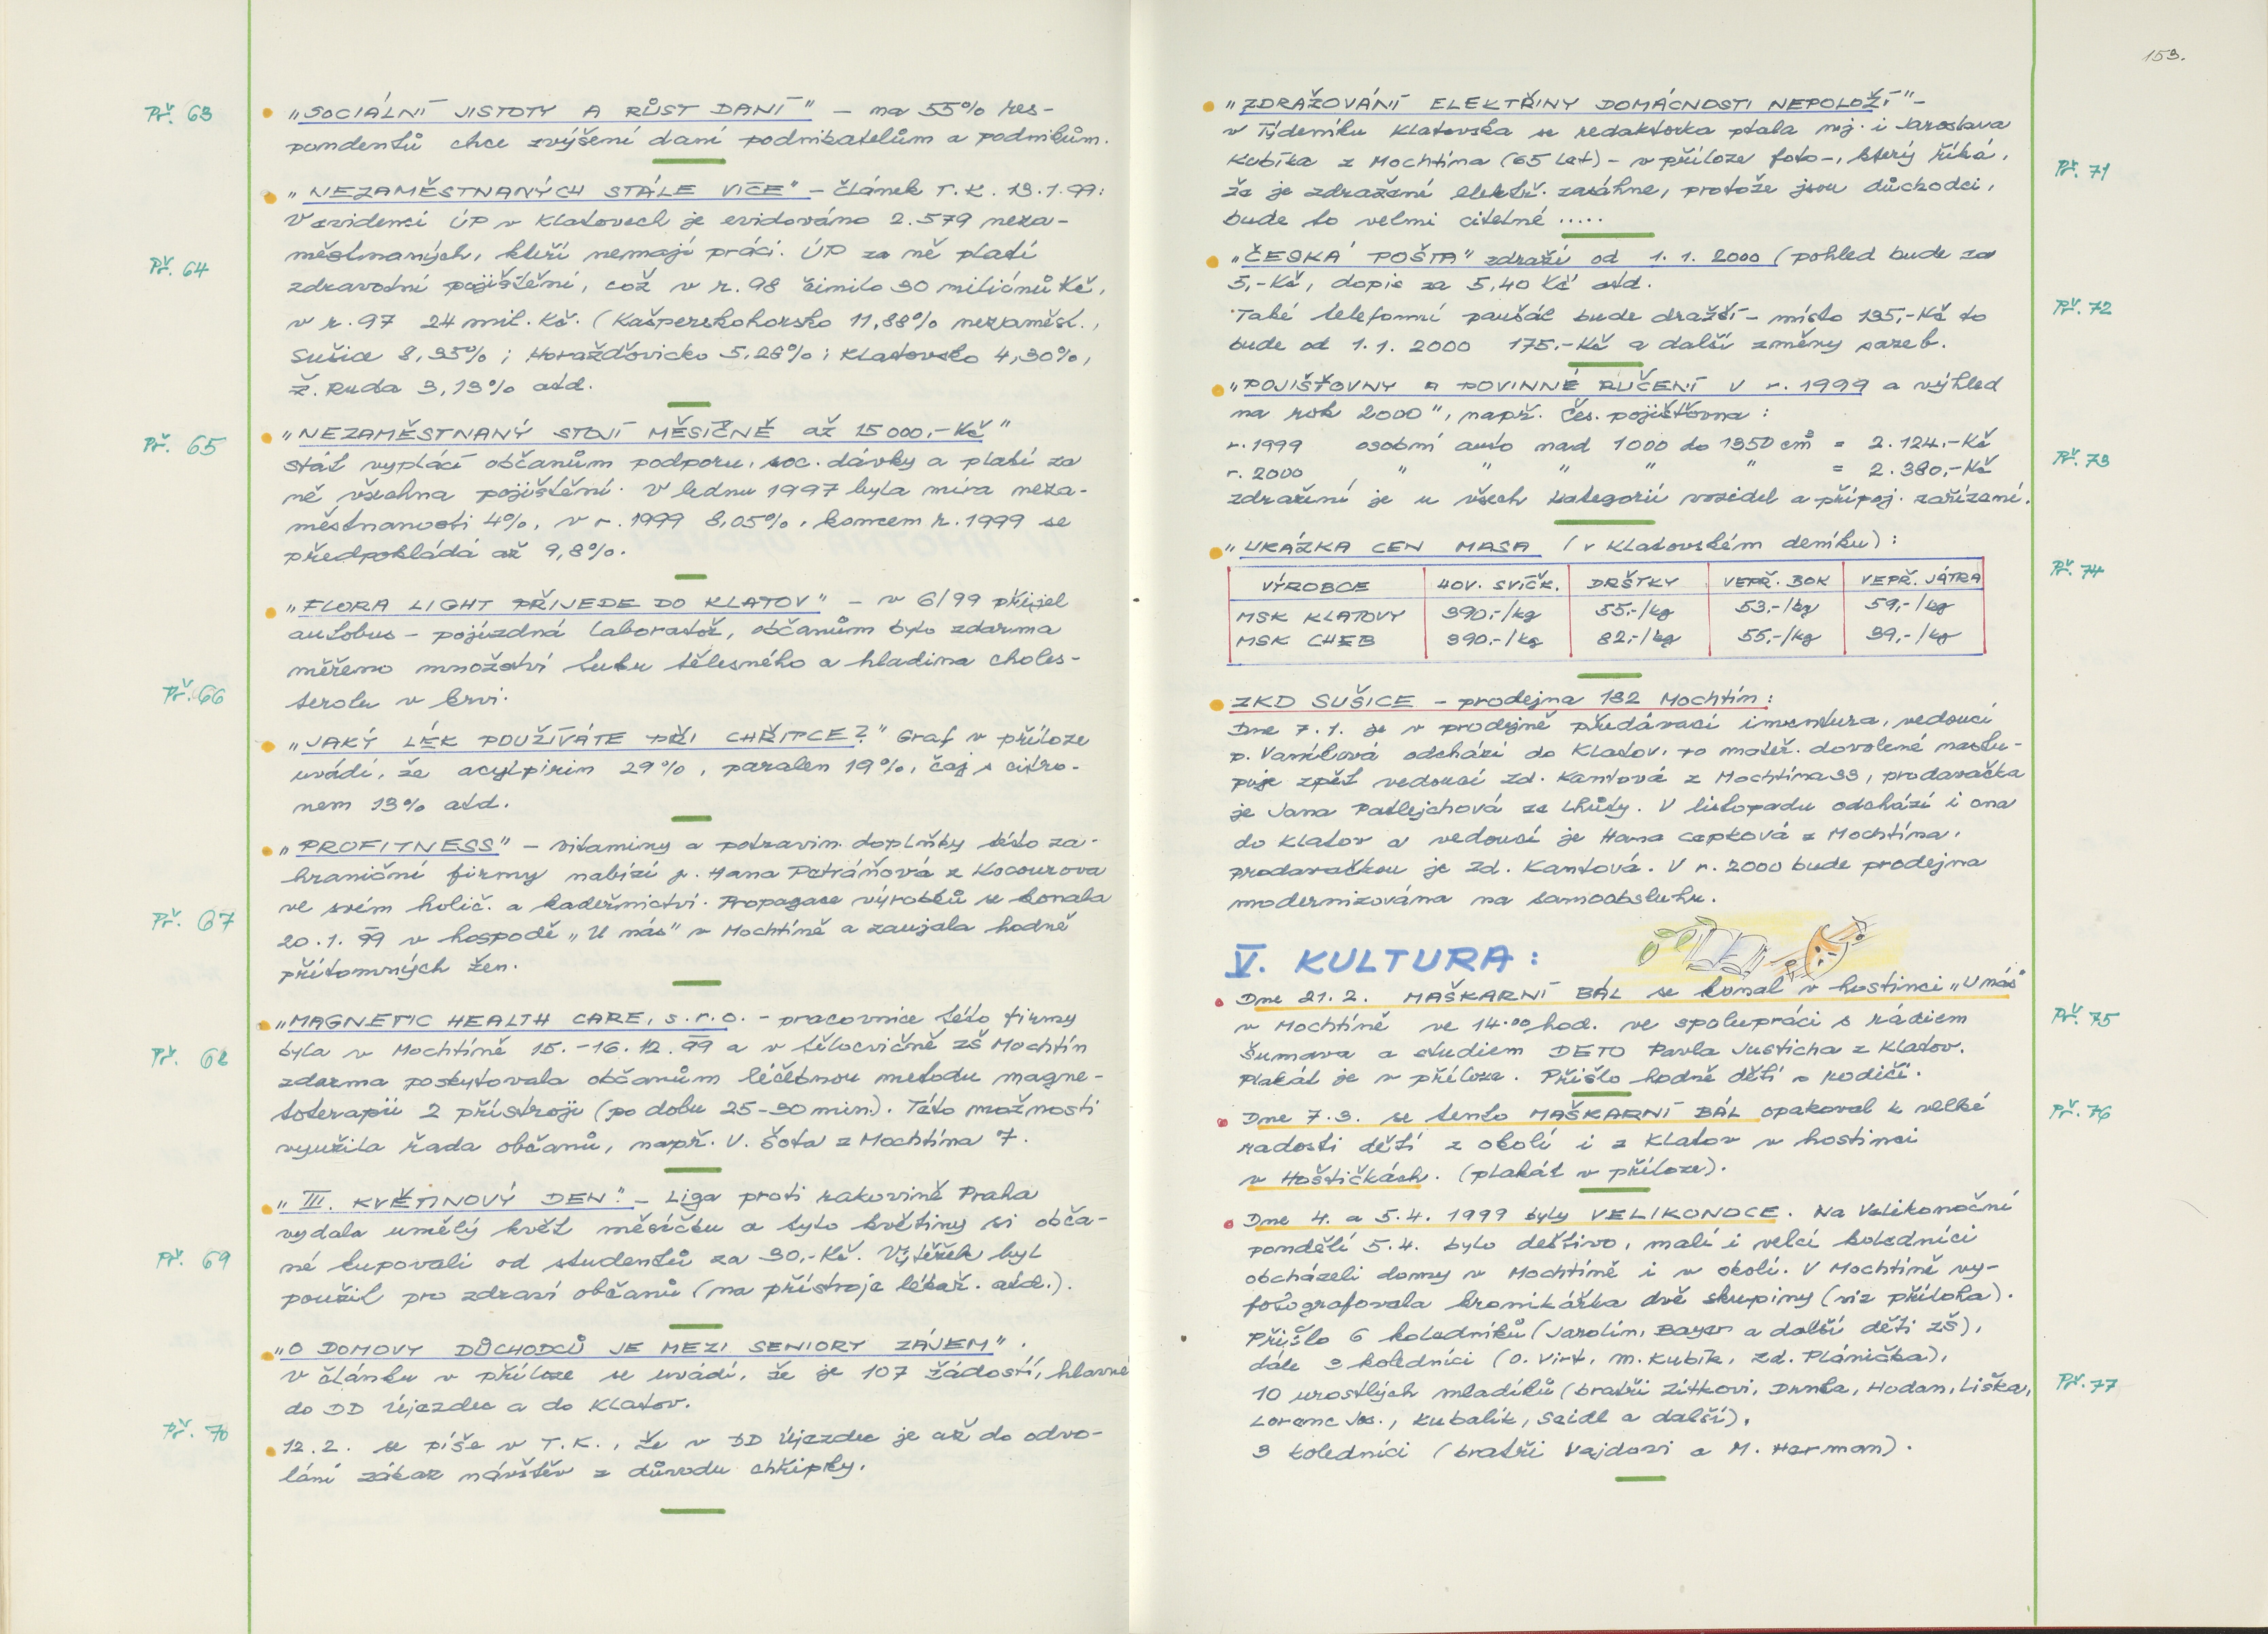 Př. 63
„SOCIÁLNÍ JISTOTY A RŮST DANÍ" – na 55% res-
pondentů chce zvýšení daní podnikatelům a podnikům.
„NEZAMĚSTNANÝCH STÁLE VÍCE" – článek T.K. 13.1.99:
V evidenci ÚP v Klatovech je evidováno 2.579 neza-
městnaných, kteří nemají práci. ÚP za ně platí
Př. 64
zdravotní pojištění, což v r. 98 činilo 30 miliónů Kč,
v r. 97 24 mil. Kč. (Kašperskohorsko 11,88% nezaměst.,
Sušice 8,35%; Horažďovicko 5,28%; Klatovsko 4,30%,
Ž. Ruda 3,13% atd.
„NEZAMĚSTNANÝ STOJÍ MĚSÍČNĚ až 15 000,-Kč"
Př. 65
stát vyplácí občanům podporu, soc. dávky a platí za
ně všechna pojištění. V lednu 1997 byla míra neza-
městnanosti 4%, v r. 1999 8,05%, koncem r. 1999 se
předpokládá až 9,8%.
„FLORA LIGHT PŘIJEDE DO KLATOV" – v 6/99 přijel
autobus – pojízdná laboratoř, občanům bylo zdarma
měřeno množství tuku tělesného a hladina choles-
terolu v krvi.
Př. 66
„JAKÝ LÉK POUŽÍVÁTE PŘI CHŘIPCE?" Graf v příloze
uvádí, že acylpirin 29%, paralen 19%, čaj s citro-
nem 13% atd.
„PROFITNESS" – vitaminy a potravin. doplňky této za-
hraniční firmy nabízí p. Hana Petráňová z Kocourova
ve svém holič. a kadeřnictví. Propagace výrobků se konala
Př. 67
20.1. 99 v hospodě „U nás" v Mochtíně a zaujala hodně
přítomných žen.
„MAGNETIC HEALTH CARE, s.r.o. – pracovnice této firmy
byla v Mochtíně 15.-16.12.99 a v tělocvičně ZŠ Mochtín
Př. 68
zdarma poskytovala občanům léčebnou metodu magne-
toterapii 2 přístroji (po dobu 25-30 min.). Této možnosti
využila řada občanů, např. V. Šota z Mochtína 7.
„III. KVĚTINOVÝ DEN." – Liga proti rakovině Praha
vydala umělý květ měsíčku a tyto květiny si obča-
né kupovali od studentů za 30,-Kč. Výtěžek byl
Př. 69
použit pro zdraví občanů (na přístroje lékař. atd.).
„O DOMOVY DŮCHODCŮ JE MEZI SENIORY ZÁJEM".
V článku v příloze se uvádí, že je 107 žádostí, hlavně
do DD Újezdec a do Klatov.
Př. 70
12.2. se píše v T.K., že v DD Újezdec je až do odvo-
lání zákaz návštěv z důvodu chřipky.
153.
„ZDRAŽOVÁNÍ ELEKTŘINY DOMÁCNOSTI NEPOLOŽÍ" –
v Týdeníku Klatovska se redaktorka ptala mj. i Jaroslava
Kubíka z Mochtína (65 let) – v příloze foto –, který říká,
Př. 71
že je zdražení elektř. zasáhne, protože jsou důchodci,
bude to velmi citelné .....
„ČESKÁ POŠTA" zdraží od 1.1. 2000 (pohled bude za
5,-Kč, dopis za 5,40 Kč atd.
Také telefonní paušál bude dražší – místo 135,-Kč to
Př. 72
bude od 1.1. 2000 175,-Kč a další změny sazeb.
„POJIŠŤOVNY A POVINNÉ RUČENÍ V r. 1999 a výhled
na rok 2000", např. Čes. pojišťovna:
r. 1999 osobní auto nad 1000 do 1350 cm³ = 2.124,-Kč
r. 2000 " " " " " = 2.380,-Kč
Př. 73
zdražení je u všech kategorií vozidel a přípoj. zařízení.
„UKÁZKA CEN MASA (v Klatovském deníku):
Př. 74
VÝROBCE HOV. SVÍČK. DRŠTKY VEPŘ. BOK VEPŘ. JÁTRA
MSK KLATOVY 390,-/kg 55,-/kg 53,-/kg 59,-/kg
MSK CHEB 390,-/kg 82,-/kg 55,-/kg 39,-/kg
ZKD SUŠICE – prodejna 182 Mochtín:
Dne 7.1. je v prodejně předávací inventura, vedoucí
p. Vaníková odchází do Klatov, po mateř. dovolené nastu-
puje zpět vedoucí Zd. Kantová z Mochtína 33, prodavačka
je Jana Patlejchová ze Lhůty. V listopadu odchází i ona
do Klatov a vedoucí je Hana Capková z Mochtína,
prodavačkou je Zd. Kantová. V r. 2000 bude prodejna
modernizována na samoobsluhu.
V. KULTURA:
Dne 21.2. MAŠKARNÍ BÁL se konal v hostinci „U nás"
v Mochtíně ve 14.00 hod. ve spolupráci s rádiem
Př. 75
Šumava a studiem DETO Pavla Justicha z Klatov.
Plakát je v příloze. Přišlo hodně dětí s rodiči.
Dne 7.3. se tento MAŠKARNÍ BÁL opakoval k velké
Př. 76
radosti dětí z okolí i z Klatov v hostinci
v Hoštičkách. (plakát v příloze).
Dne 4. a 5.4. 1999 byly VELIKONOCE. Na Velikonoční
pondělí 5.4. bylo deštivo, malí i velcí koledníci
obcházeli domy v Mochtíně i v okolí. V Mochtíně vy-
fotografovala kronikářka dvě skupiny (viz příloha).
Přišlo 6 koledníků (Jarolím, Bayer a další děti ZŠ),
dále 3 koledníci (O. Virt, M. Kubík, Zd. Plánička),
10 urostlých mladíků (bratři Zítkovi, Drnka, Hodan, Liška,
Př. 77
Lorenc Jos., Kubalík, Seidl a další),
3 koledníci (bratři Vajdovi a M. Herman).